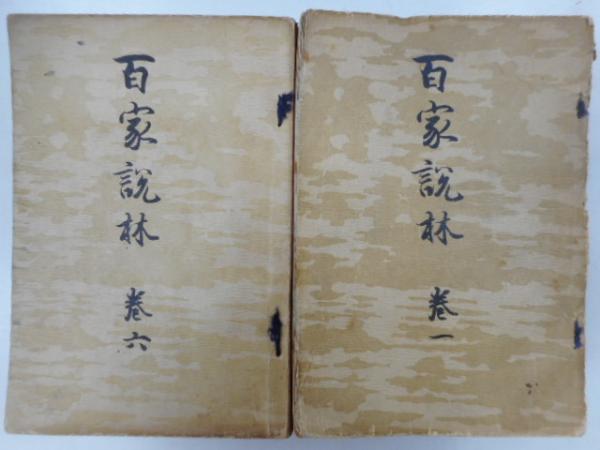 百家説林 巻六
百家説林 巻一